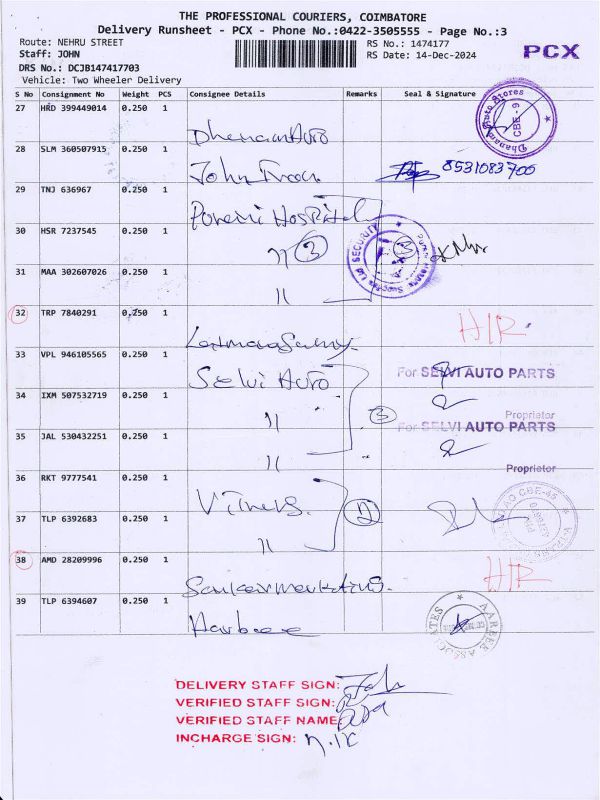 THE PROFESSIONAL COURIERS, COIMBATORE
Delivery Runsheet - PCX - Phone No.:0422-3505555 - Page No.:3
Route: NEHRU STREET
Staff: JOHN
DRS No.: DCJB147417703
Vehicle: Two Wheeler Delivery
RS No.: 1474177
RS Date: 14-Dec-2024
PCX
S No Consignment No Weight PCS Consignee Details Remarks Seal & Signature
27 HRD 399449014 0.250 1
Dhanam Auto
Dhanam Auto Stores
CBE-9
28 SLM 360507915 0.250 1
John 8531083700
29 TNJ 636967 0.250 1
Hospital
30 HSR 7237545 0.250 1
" 3
SECURITY
31 MAA 302607026 0.250 1
"
32 TRP 7840291 0.250 1
Latmanasamy H/R
33 VPL 946105565 0.250 1
Selvi Auto
For SELVI AUTO PARTS
34 IXM 507532719 0.250 1
" 3
Proprietor
For SELVI AUTO PARTS
35 JAL 530432251 0.250 1
"
Proprietor
36 RKT 9777541 0.250 1
2
37 TLP 6392683 0.250 1
"
38 AMD 28209996 0.250 1
H/R
39 TLP 6394607 0.250 1
Harbee
AARBEE ASSOCIATES
DELIVERY STAFF SIGN: John
VERIFIED STAFF SIGN:
VERIFIED STAFF NAME:
INCHARGE SIGN: